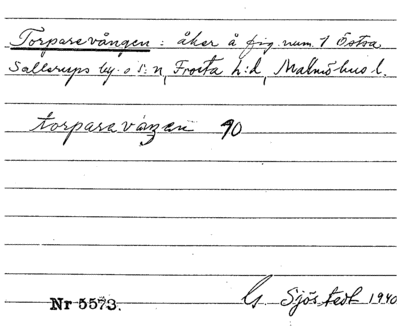 Torparevången: åker å fig. num. 1 Östra
Sallerups by. o s:n, Frosta h:d, Malmöhus l.
torparevåŋen 90
Nr 5573.
G. Sjöstedt 1940